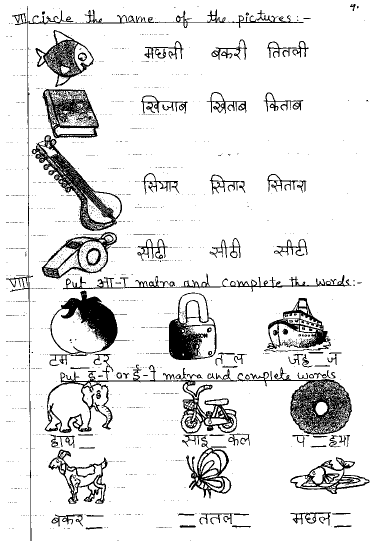 9.
VII Circle the name of the pictures:-
मछली बकरी तितली
खिजाब खिताब किताब
सिमार सितार सितारा
सीढ़ी सीठी सीटी
VIII Put आ-ा matra and complete the words:-
टम _ टर त_ल जह_ज
Put इ-ि or ई-ी matra and complete words
हाथ_ साइ_कल प_हया
बकर_ _ततल_ मछल_